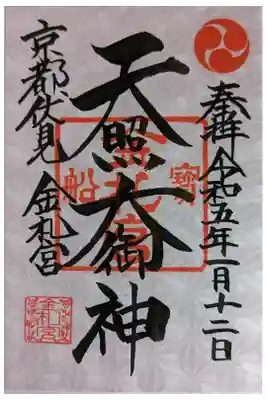 奉拝令和五年一月十二日
天照大御神
京都伏見 金札宮
寶
金札宮
船